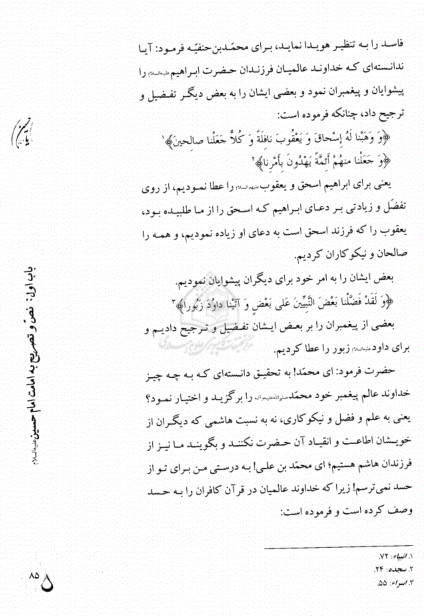 فاسد را به تنظیر هویدا نماید، برای محمّدبن‌حنفیّه فرمود: آیا
ندانسته‌ای که خداوند عالمیان فرزندان حضرت ابراهیم علیه‌السلام را
پیشوایان و پیغمبران نمود و بعضی ایشان را به بعض دیگر تفضیل و
ترجیح داد، چنانکه فرموده است:
﴿وَ وَهَبْنا لَهُ إِسْحاقَ وَ یَعْقُوبَ نافِلَةً وَ کُلاًّ جَعَلْنا صالِحینَ﴾۱
﴿وَ جَعَلْنا مِنهُمْ أَئِمَّةً یَهْدُونَ بِأَمْرِنا﴾۲
یعنی برای ابراهیم اسحق و یعقوب علیهم‌السلام را عطا نمودیم، از روی
تفضّل و زیادتی بر دعای ابراهیم که اسحق را از ما طلبیده بود،
یعقوب را که فرزند اسحق است به دعای او زیاده نمودیم، و همه را
صالحان و نیکوکاران کردیم.
بعض ایشان را به امر خود برای دیگران پیشوایان نمودیم.
﴿وَ لَقَدْ فَضَّلْنا بَعْضَ النَّبِیِّینَ عَلی بَعْضٍ وَ آتَیْنا داوُدَ زَبُورا﴾۳
بعضی از پیغمبران را بر بعض ایشان تفضیل و ترجیح دادیم و
برای داود علیه‌السلام زبور را عطا کردیم.
حضرت فرمود: ای محمّد! به تحقیق دانسته‌ای که به چه چیز
خداوند عالم پیغمبر خود محمّد صلی‌الله‌علیه‌وآله را برگزید و اختیار نمود؟
یعنی به علم و فضل و نیکوکاری، نه به نسبت هاشمی که دیگران از
خویشان اطاعت و انقیاد آن حضرت نکنند و بگویند ما نیز از
فرزندان هاشم هستیم؛ ای محمّد بن علی! به درستی من برای تو از
حسد نمی‌ترسم! زیرا که خداوند عالمیان در قرآن کافران را به حسد
وصف کرده است و فرموده است:
۱. انبیاء: ۷۲.
۲. سجده: ۲۴.
۳. اسراء: ۵۵.
باب اول: نصّ و تصریح به امامت امام حسین علیه‌السلام
۸۵